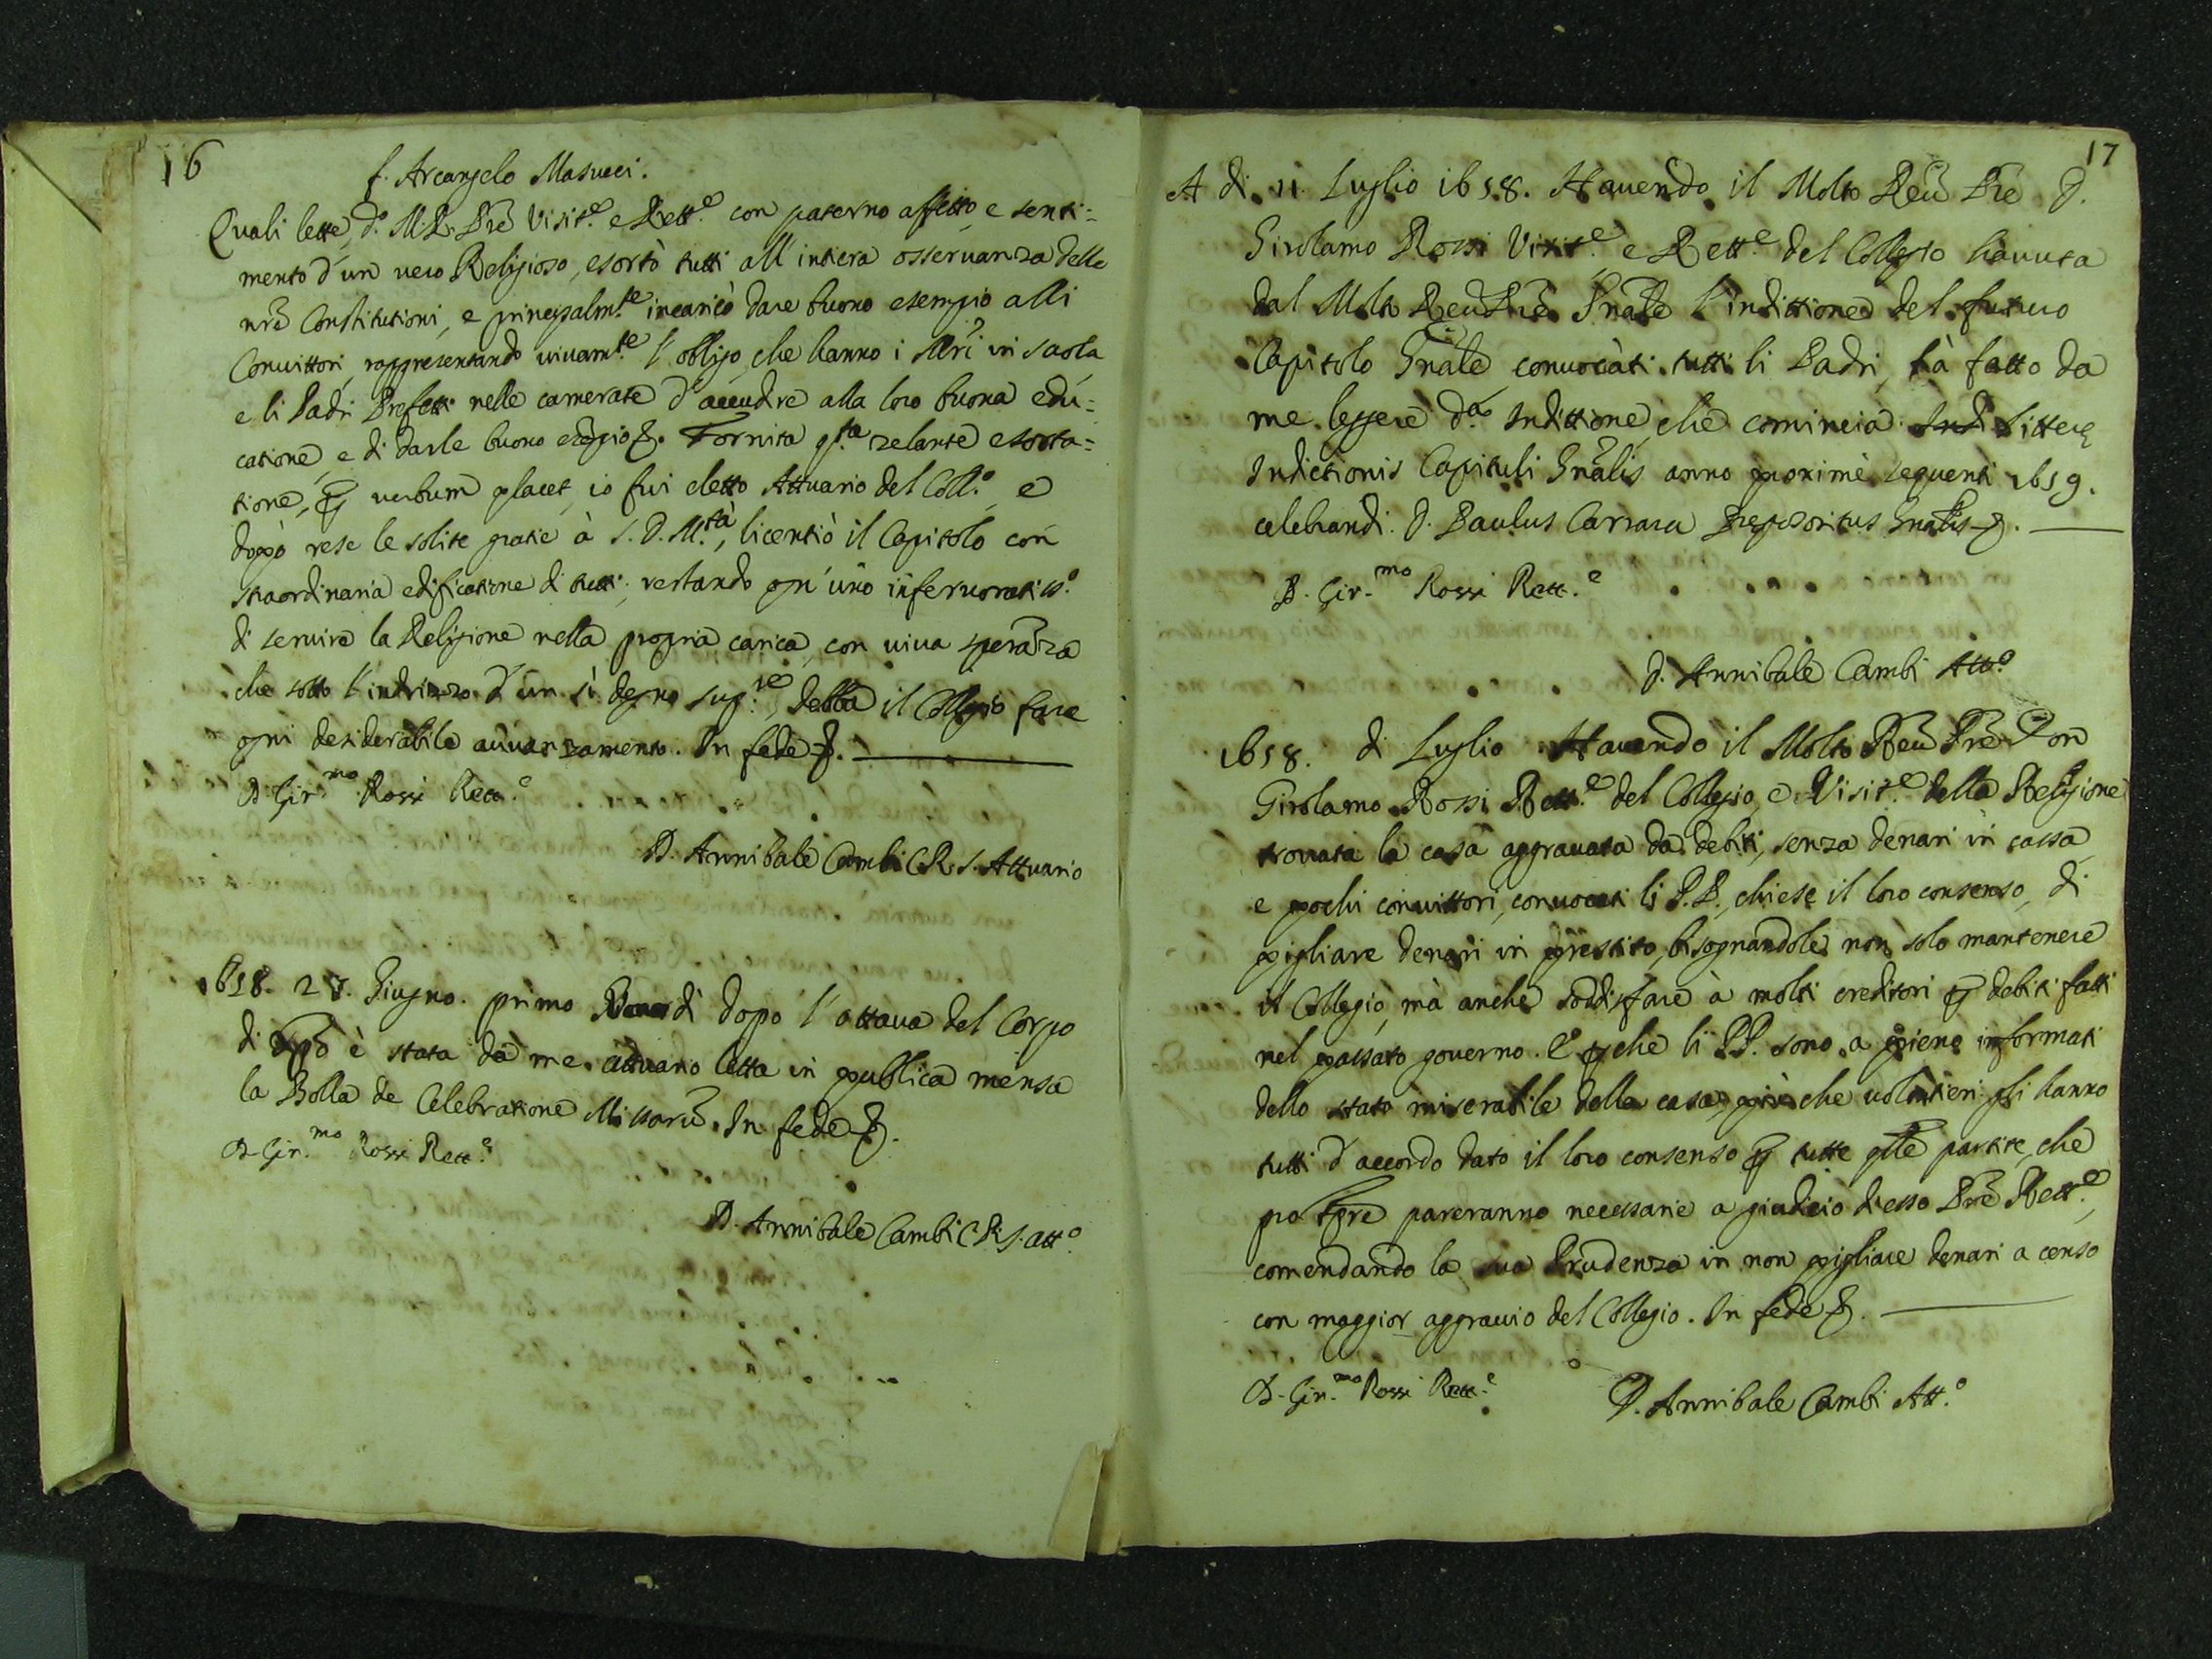 16
f. Arcangelo Masucci.
Quali lette, d.º M.R. Prē Visit.e e Rett.e con paterno affetto, e senti=
mento d'un vero Religioso, esortò tutti all'intiera osseruanza delle
nrē Constitutioni, e principalm.te incaricò dare buono esempio alli
Conuittori, rappresentando uiuam.te l'obligo, che hanno i Mrī in scola,
e li Padri Prefetti nelle camerate d'accudire alla loro buona edu=
catione, e di darle buono esēpio &. Fornita q.ta zelante esorta=
tione, ꝑ uerbum placet, io fui eletto Attuario del Coll.º, e
dopò rese le solite gratie à S.D.M.tà, licentiò il Capitolo con
straordinaria edificatione di tutti; restando ogn'uno inferuoratiss.º
di seruire la Religione nella propria carica, con uiua sperāza
che sotto l'indrizzo d'un sì degno sup.re, debba il Collegio fare
ogni desiderabile auuanzamento. In fede &.
D. Gir.mo Rossi Rett.e
D. Annibale Cambi C.R.S. Attuario
1658. 28. Giugno. primo dì dopo l'ottaua del Corpo
di è stata da me attuario letta in publica mensa
la Bolla de Celebratione Missarū. In fede &.
D. Gir.mo Rossi Rett.e
D. Annibale Cambi C.R.S. att.º
17
A di 11 Luglio 1658. Hauendo il Molto Reū Prē D.
Girolamo Rossi Visit.e e Rett.e del Collegio hauuta
dal Molto Reū Prē Gnāle l'indittione del futuro
Capitolo Gnāle, conuocati tutti li Padri, hà fatto da
me leggere d.a Indittione, che comincia Litterę
Indictionis Capituli Gnālis anno proximè sequenti 1659.
celebrandi. D. Paulus Carrara Prępositus Gnālis &.
D. Gir.mo Rossi Rett.e
D. Annibale Cambi Att.º
1658. di Luglio Hauendo il Molto Reū Prē Don
Girolamo Rossi Rett.e del Collegio, e Visit.e della Religione
trouata la casa aggrauata da debiti, senza denari in cassa,
e pochi conuittori, conuocati li P.P., chiese il loro consenso, di
pigliare denari in prestito, bisognandole non solo mantenere
il Collegio, mà anche soddisfare à molti creditori ꝑ debiti fatti
nel passato gouerno. E ꝑche li PP. sono a pieno informati
dello stato miserabile della casa, più che uolōtieri gli hanno
tutti d'accordo dato il loro consenso ꝑ tutte qlle partite, che
pro tpre pareranno necessarie a giudicio di esso Prē Rett.e,
comendando la sua Prudenza in non pigliare denari a censo
con maggior aggrauio del Collegio. In fede &.
D. Gir.mo Rossi Rett.e
D. Annibale Cambi Att.º